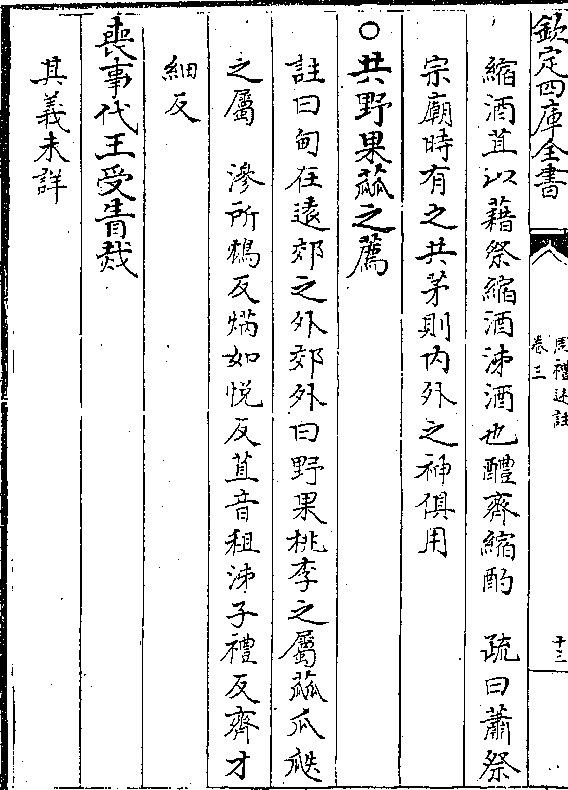 欽定四庫全書
周禮述註
卷三
十三
縮酒苴以藉祭縮酒泲酒也醴齊縮酌　疏曰蕭祭
宗廟時有之共茅則内外之神俱用
○共野果蓏之薦
註曰甸在遠郊之外郊外曰野果桃李之屬蓏瓜瓞
之屬　滲所鴆反焫如悦反苴音租泲子禮反齊才
細反
喪事代王受眚烖
其義未詳